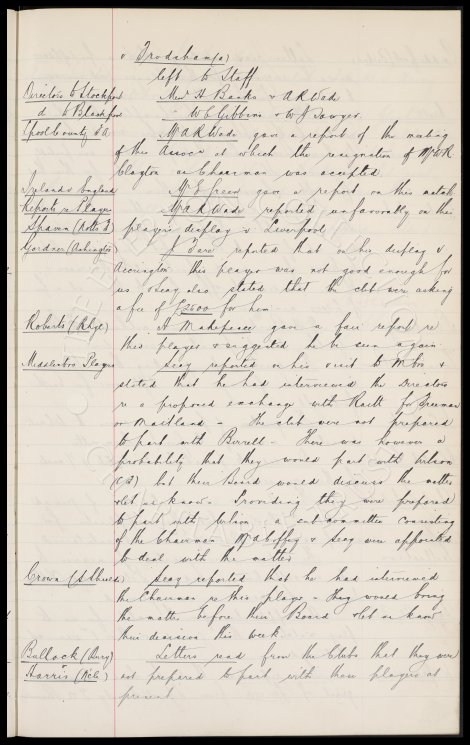 v Frodsham(a)
left to Staff.
Directors to Stockport Messrs H Banks & A R Wade
d to Blackpool W C Gibbins & W J Sawyer.
Lpool County F A Mr A R Wade gave a report of the meeting
of this Assocn at which the resignation of Mr W R
Clayton as Chairman was accepted.
Ireland v England Mr E Green gave a report on this match
Reports re Players Mr A R Wade reported unfavorably on this
Spawn (Notts F) players display v Liverpool
Gordner (Accrington) J Fare reported that on his display v
Accrington this player was not good enough for
us. Secy also stated that the club were asking
a fee of £2500 for him
Roberts (Rhyl) H Makepeace gave a fair report re
this player & suggested he be seen again.
Middlesbro Players Secy reported on his visit to Mbro &
stated that he had interviewed the Directors
re a proposed exchange with Raitt for Freeman
or Maitland - The club were not prepared
to part with Birrell - There was however a
probability that they would part with Wilson
but their Board would discuss the matter
& let us know. Providing they were prepared
to part with Wilson, a sub committee consisting
of the Chairman, Mr A Coffey & Secy were appointed
to deal with the matter
Crown (S Shields) Secy reported that he had interviewed
the Chairman re this player - They would bring
the matter before their Board & let us know
their decision this week.
Bullock (Bury) Letters read from the Clubs that they were
Harris not prepared to part with these players at
present